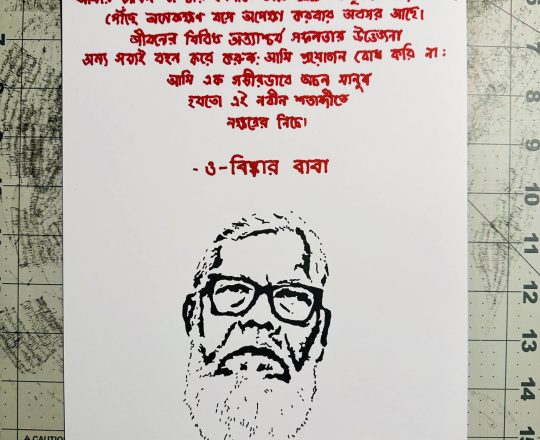 পৌঁছে অনেকক্ষণ বসে অপেক্ষা করবার অবসর আছে।
জীবনের বিবিধ অত্যাশ্চর্য সফলতার উত্তেজনা
অন্য সবাই বহন করে করুক; আমি প্রয়োজন বোধ করি না :
আমি এক গভীরভাবে অচল মানুষ
হয়তো এই নবীন শতাব্দীতে
নক্ষত্রের নিচে।
- ও-বিষ্কার বাবা
10
11
12
13
14
15